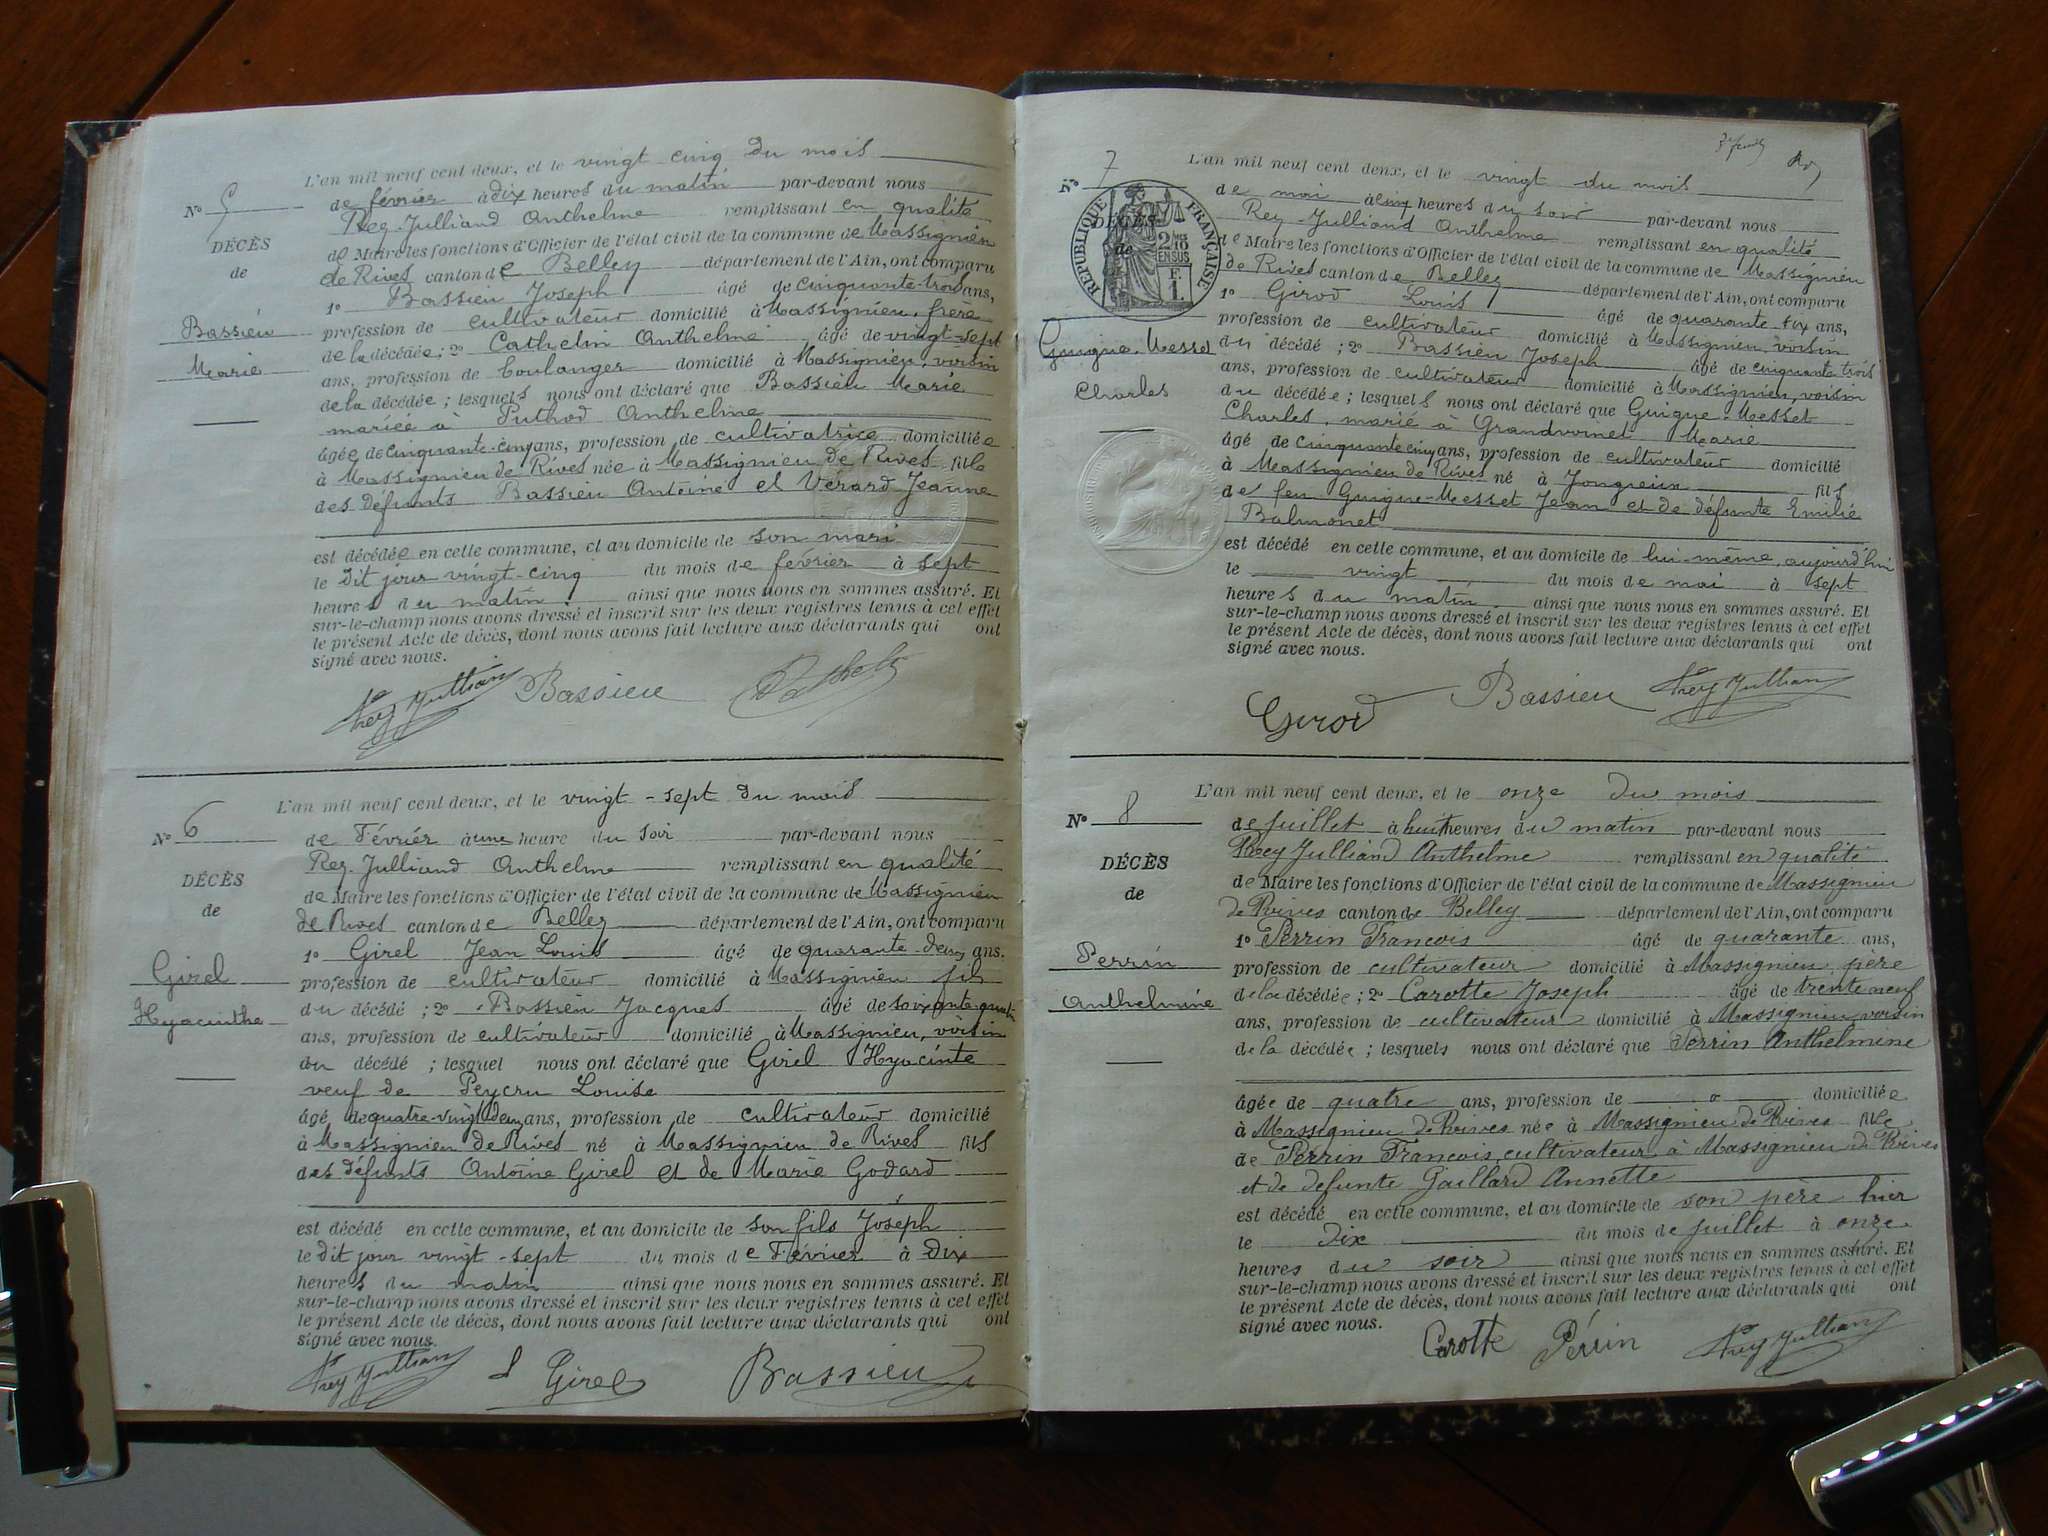 L'an mil neuf cent deux, et le vingt cinq du mois
No 5
de février à dix heures du matin par-devant nous
Rey-Julliand Anthelme remplissant en qualité
DÉCÈS
de Maire les fonctions d'Officier de l'état civil de la commune de Massignieu
de
de Rives canton de Belley département de l'Ain, ont comparu
1o Bassieu Joseph âgé de cinquante-trois ans,
Bassieu
profession de cultivateur domicilié à Massignieu, frère
de la décédée; 2o Cathelin Anthelme âgé de vingt-sept
Marie
ans, profession de boulanger domicilié à Massignieu, voisin
de la décédée; lesquels nous ont déclaré que Bassieu Marie
mariée à Puthod Anthelme
âgée de cinquante-cinq ans, profession de cultivatrice domiciliée
à Massignieu de Rives née à Massignieu de Rives fille
des défunts Bassieu Antoine et Vérard Jeanne
est décédée en cette commune, et au domicile de son mari
le dit jour vingt-cinq du mois de février à sept
heures du matin ainsi que nous nous en sommes assuré. Et
sur-le-champ nous avons dressé et inscrit sur les deux registres tenus à cet effet
le présent Acte de décès, dont nous avons fait lecture aux déclarants qui ont
signé avec nous.
Rey Jullian Bassieu
L'an mil neuf cent deux, et le vingt-sept du mois
No 6
de Février à une heure du soir par-devant nous
Rey-Julliand Anthelme remplissant en qualité
DÉCÈS
de Maire les fonctions d'Officier de l'état civil de la commune de Massignieu
de
de Rives canton de Belley département de l'Ain, ont comparu
1o Girel Jean Louis âgé de quarante-deux ans.
Girel
profession de cultivateur domicilié à Massignieu fils
du décédé; 2o Bassieu Jacques âgé de soixante-quatre
Hyacinthe
ans, profession de cultivateur domicilié à Massignieu, voisin
du décédé; lesquel nous ont déclaré que Girel Hyacinte
veuf de Peycru Louise
âgé de quatre-vingt deux ans, profession de cultivateur domicilié
à Massignieu de Rives né à Massignieu de Rives fils
des défunts Antoine Girel et de Marie Godard
est décédé en cette commune, et au domicile de son fils Joseph
le dit jour vingt-sept du mois de Février à dix
heures du matin ainsi que nous nous en sommes assuré. Et
sur-le-champ nous avons dressé et inscrit sur les deux registres tenus à cet effet
le présent Acte de décès, dont nous avons fait lecture aux déclarants qui ont
signé avec nous.
Rey Jullian Girel Bassieu
L'an mil neuf cent deux, et le vingt du mois
No 7
de mai à cinq heures du soir par-devant nous
RÉPUBLIQUE FRANÇAISE
2/10 EN SUS
F. 1.
DÉCÈS
de
Rey-Julliand Anthelme remplissant en qualité
de Maire les fonctions d'Officier de l'état civil de la commune de Massignieu
de Rives canton de Belley département de l'Ain, ont comparu
1o Girod Louis âgé de quarante six ans,
profession de cultivateur domicilié à Massignieu, voisin
Guigue-Messet
du décédé; 2o Bassieu Joseph âgé de cinquante trois
ans, profession de cultivateur domicilié à Massignieu, voisin
Charles
du décédée; lesquels nous ont déclaré que Guigue-Messet
Charles, marié à Grandvoinet Marie
âgé de cinquante cinq ans, profession de cultivateur domicilié
à Massignieu de Rives né à Jongieux fils
de feu Guigue-Messet Jean et de défunte Emilie
Balmonet
est décédé en cette commune, et au domicile de lui-même, aujourd'hui
le vingt du mois de mai à sept
heures du matin ainsi que nous nous en sommes assuré. Et
sur-le-champ nous avons dressé et inscrit sur les deux registres tenus à cet effet
le présent Acte de décès, dont nous avons fait lecture aux déclarants qui ont
signé avec nous.
Girod Bassieu Rey Jullian
L'an mil neuf cent deux, et le onze du mois
No 8
de juillet à huit heures du matin par-devant nous
Rey Julliand Anthelme remplissant en qualité
DÉCÈS
de Maire les fonctions d'Officier de l'état civil de la commune de Massignieu
de
de Rives canton de Belley département de l'Ain, ont comparu
1o Perrin François âgé de quarante ans,
Perrin
profession de cultivateur domicilié à Massignieu, père
de la décédée; 2o Carotte Joseph âgé de trente neuf
Anthelmine
ans, profession de cultivateur domicilié à Massignieu voisin
de la décédée; lesquels nous ont déclaré que Perrin Anthelmine
âgée de quatre ans, profession de o domiciliée
à Massignieu de Rives née à Massignieu de Rives fille
de Perrin François, cultivateur à Massignieu de Rives
et de defunte Gaillard Annette
est décédé en cette commune, et au domicile de son père hier
le dix du mois de juillet à onze
heures du soir ainsi que nous nous en sommes assuré. Et
sur-le-champ nous avons dressé et inscrit sur les deux registres tenus à cet effet
le présent Acte de décès, dont nous avons fait lecture aux déclarants qui ont
signé avec nous.
Carotte Périn Rey Jullian